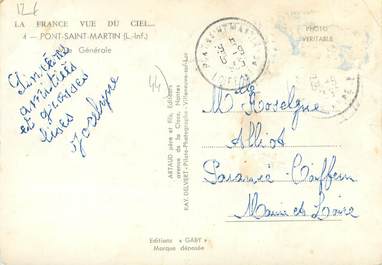 12 €
LA FRANCE VUE DU CIEL...
4 — PONT-SAINT-MARTIN (L.-Inf.)
Générale
PHOTO
VÉRITABLE
PONT-SAINT-MARTIN
Sincères
amitiés
et grosses
bises
Jocelyne
44)
ARTAUD père et fils, Editeurs
avenue de la Close, Nantes
RAY-DELVERT - Pilote-Photographe - Villeneuve-sur-Lot
Alliot
Coiffeur
Maine et Loire
Editions « GABY »
Marque déposée